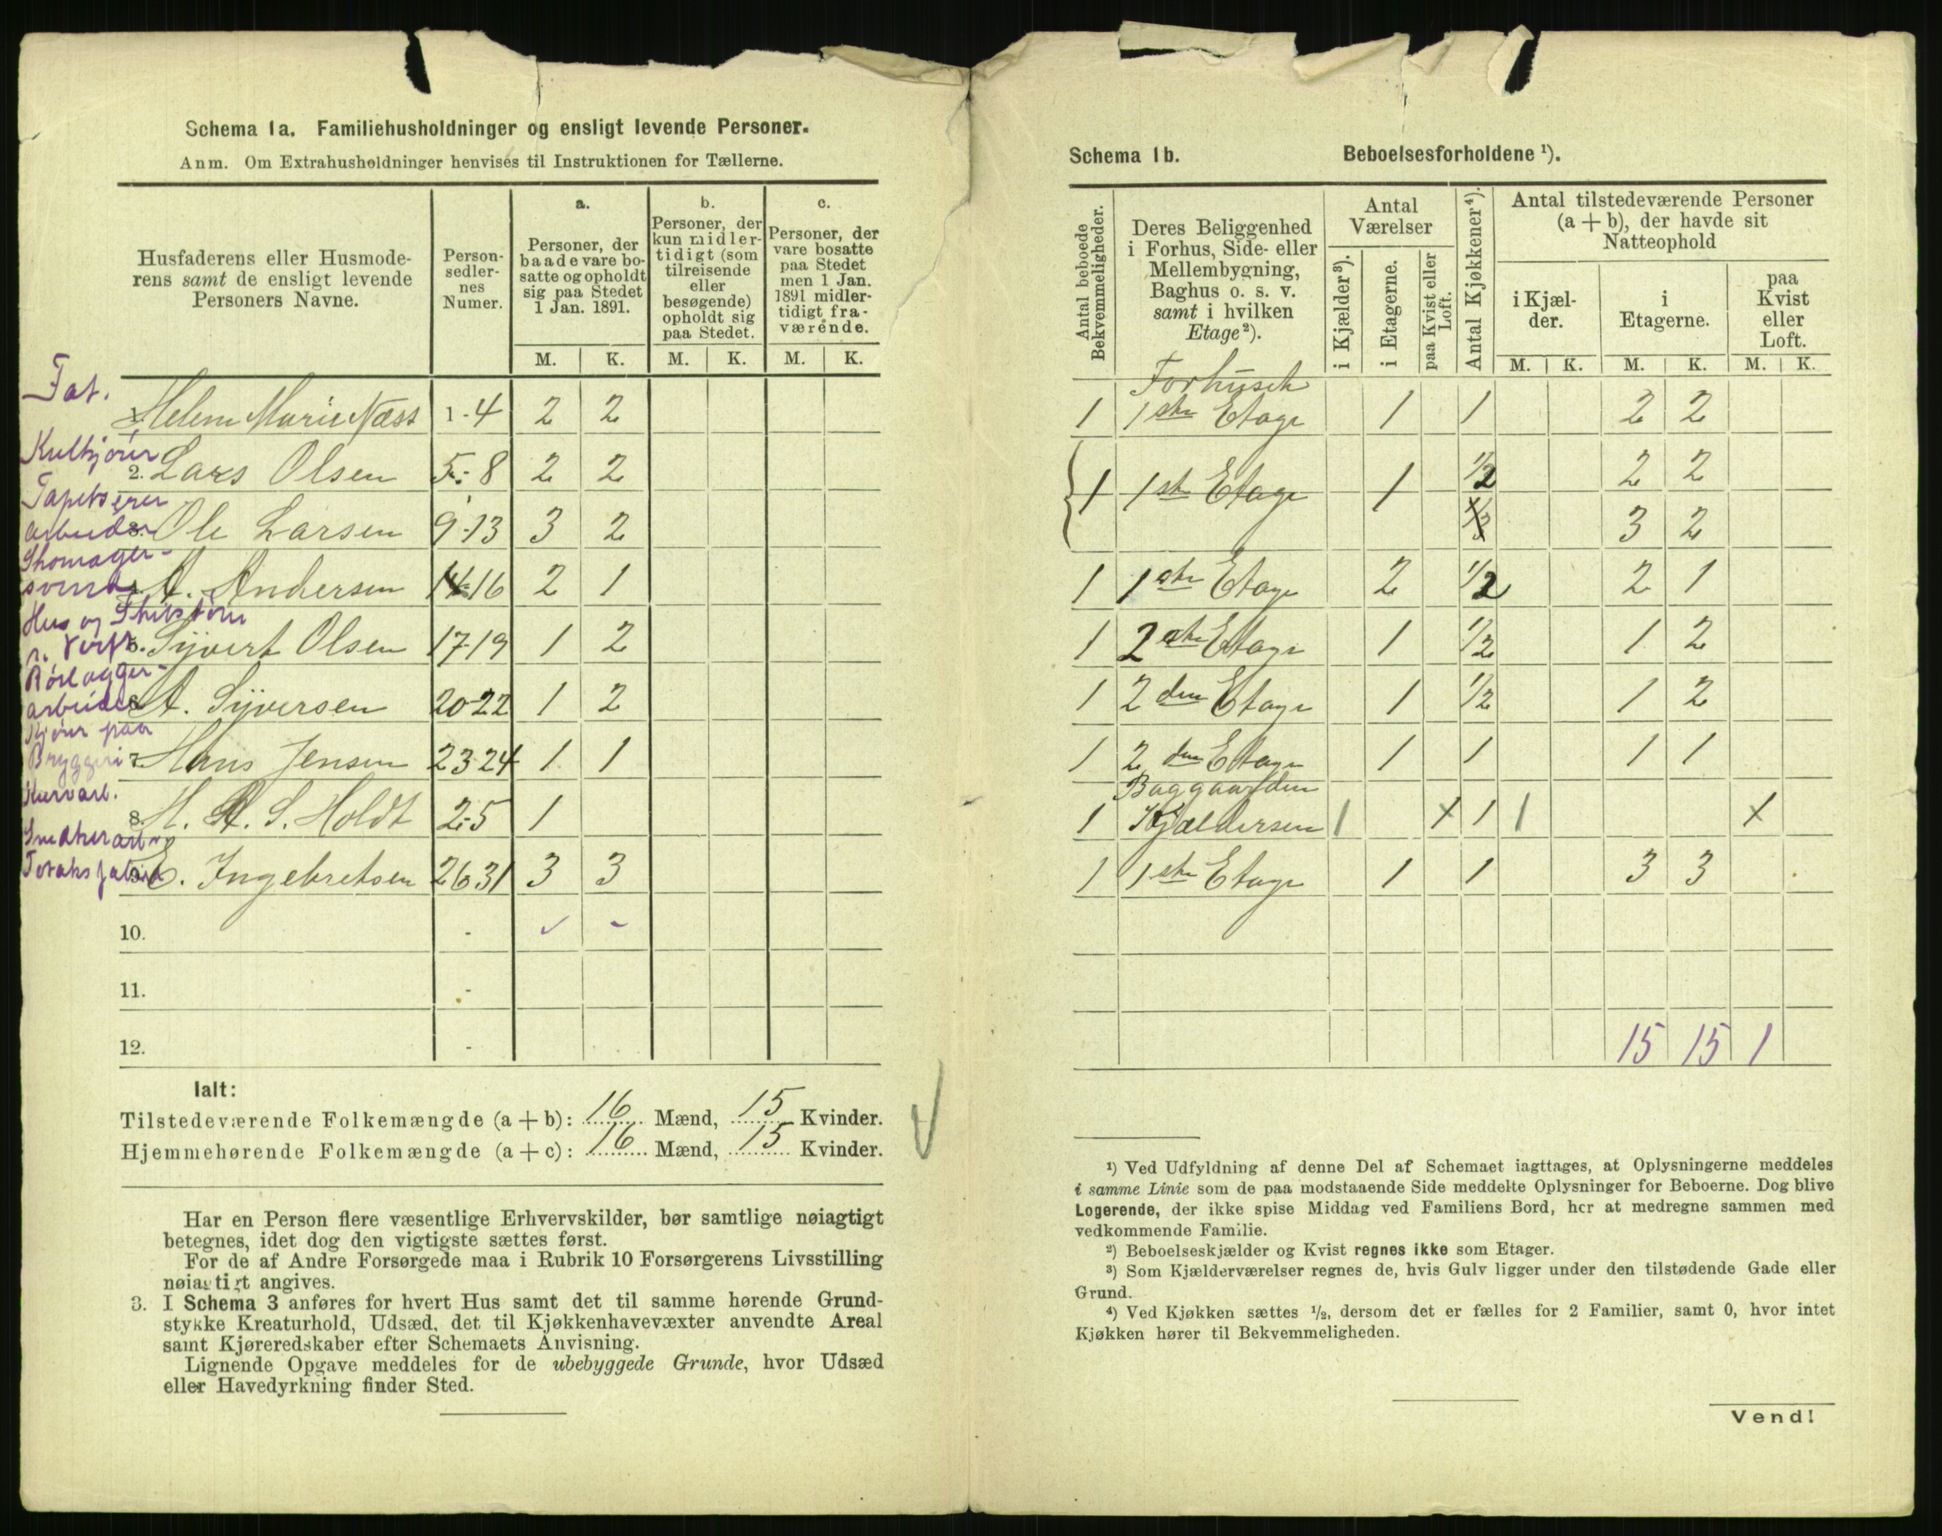 Schema 1a. Familiehusholdninger og ensligt levende Personer.
Anm. Om Extrahusholdninger henvises til Instruktionen for Tællerne.
Husfaderens eller Husmoderens samt de ensligt levende Personers Navne.
Personsedlernes Numer.
a. Personer, der baade vare bosatte og opholdt sig paa Stedet 1 Jan. 1891.
b. Personer, der kun midlertidigt (som tilreisende eller besøgende) opholdt sig paa Stedet.
c. Personer, der vare bosatte paa Stedet men 1 Jan. 1891 midlertidigt fraværende.
M. K. M. K. M. K.
Fat.
Helene Marie Næss 1-4 2 2
Kulkjører
2. Lars Olsen 5-8 2 2
Tapetserer
arbeider
3. Ole Larsen 9-13 3 2
Skomager-
svend
A. Andersen 14-16 2 1
Hus og
5. Syvert Olsen 17-19 1 2
Rørlægger-
arbeider
6. A. Syversen 20-22 1 2
Kjører paa
Bryggeri
7. Hans Jensen 23-24 1 1
Kurvarb.
8. H. A. S. Holdt 25 1
Snedkerarb
9. E. Ingebretsen 26-31 3 3
10. -
11. -
12. -
Ialt:
Tilstedeværende Folkemængde (a+b): 16 Mænd, 15 Kvinder.
Hjemmehørende Folkemængde (a+c): 16 Mænd, 15 Kvinder.
Har en Person flere væsentlige Erhvervskilder, bør samtlige nøiagtigt
betegnes, idet dog den vigtigste sættes først.
For de af Andre Forsørgede maa i Rubrik 10 Forsørgerens Livsstilling
nøiagtigt angives.
3. I Schema 3 anføres for hvert Hus samt det til samme hørende Grund-
stykke Kreaturhold, Udsæd, det til Kjøkkenhavevæxter anvendte Areal
samt Kjøreredskaber efter Schemaets Anvisning.
Lignende Opgave meddeles for de ubebyggede Grunde, hvor Udsæd
eller Havedyrkning finder Sted.
Schema 1b. Beboelsesforholdene ¹).
Antal beboede Bekvemmeligheder.
Deres Beliggenhed i Forhus, Side- eller Mellembygning, Baghus o. s. v. samt i hvilken Etage²).
Antal Værelser
i Kjælder³).
i Etagerne.
paa Kvist eller Loft.
Antal Kjøkkener⁴).
Antal tilstedeværende Personer (a+b), der havde sit Natteophold
i Kjælder.
i Etagerne.
paa Kvist eller Loft.
M. K. M. K. M. K.
Forhuset
1 1ste Etage 1 1 2 2
1 1ste Etage 1 1/2 2 2
1/2 3 2
1 1ste Etage 2 1/2 2 1
1 2den Etage 1 1/2 1 2
1 2den Etage 1 1/2 1 2
1 2den Etage 1 1 1 1
Baggaarden
1 Kjælderen 1 x 1 1 x
1 1ste Etage 1 1 3 3
15 15 1
¹) Ved Udfyldning af denne Del af Schemaet iagttages, at Oplysningerne meddeles
i samme Linie som de paa modstaaende Side meddelte Oplysninger for Beboerne. Dog blive
Logerende, der ikke spise Middag ved Familiens Bord, her at medregne sammen med
vedkommende Familie.
²) Beboelseskjælder og Kvist regnes ikke som Etager.
³) Som Kjælderværelser regnes de, hvis Gulv ligger under den tilstødende Gade eller
Grund.
⁴) Ved Kjøkken sættes ½, dersom det er fælles for 2 Familier, samt 0, hvor intet
Kjøkken hører til Bekvemmeligheden.
Vend!